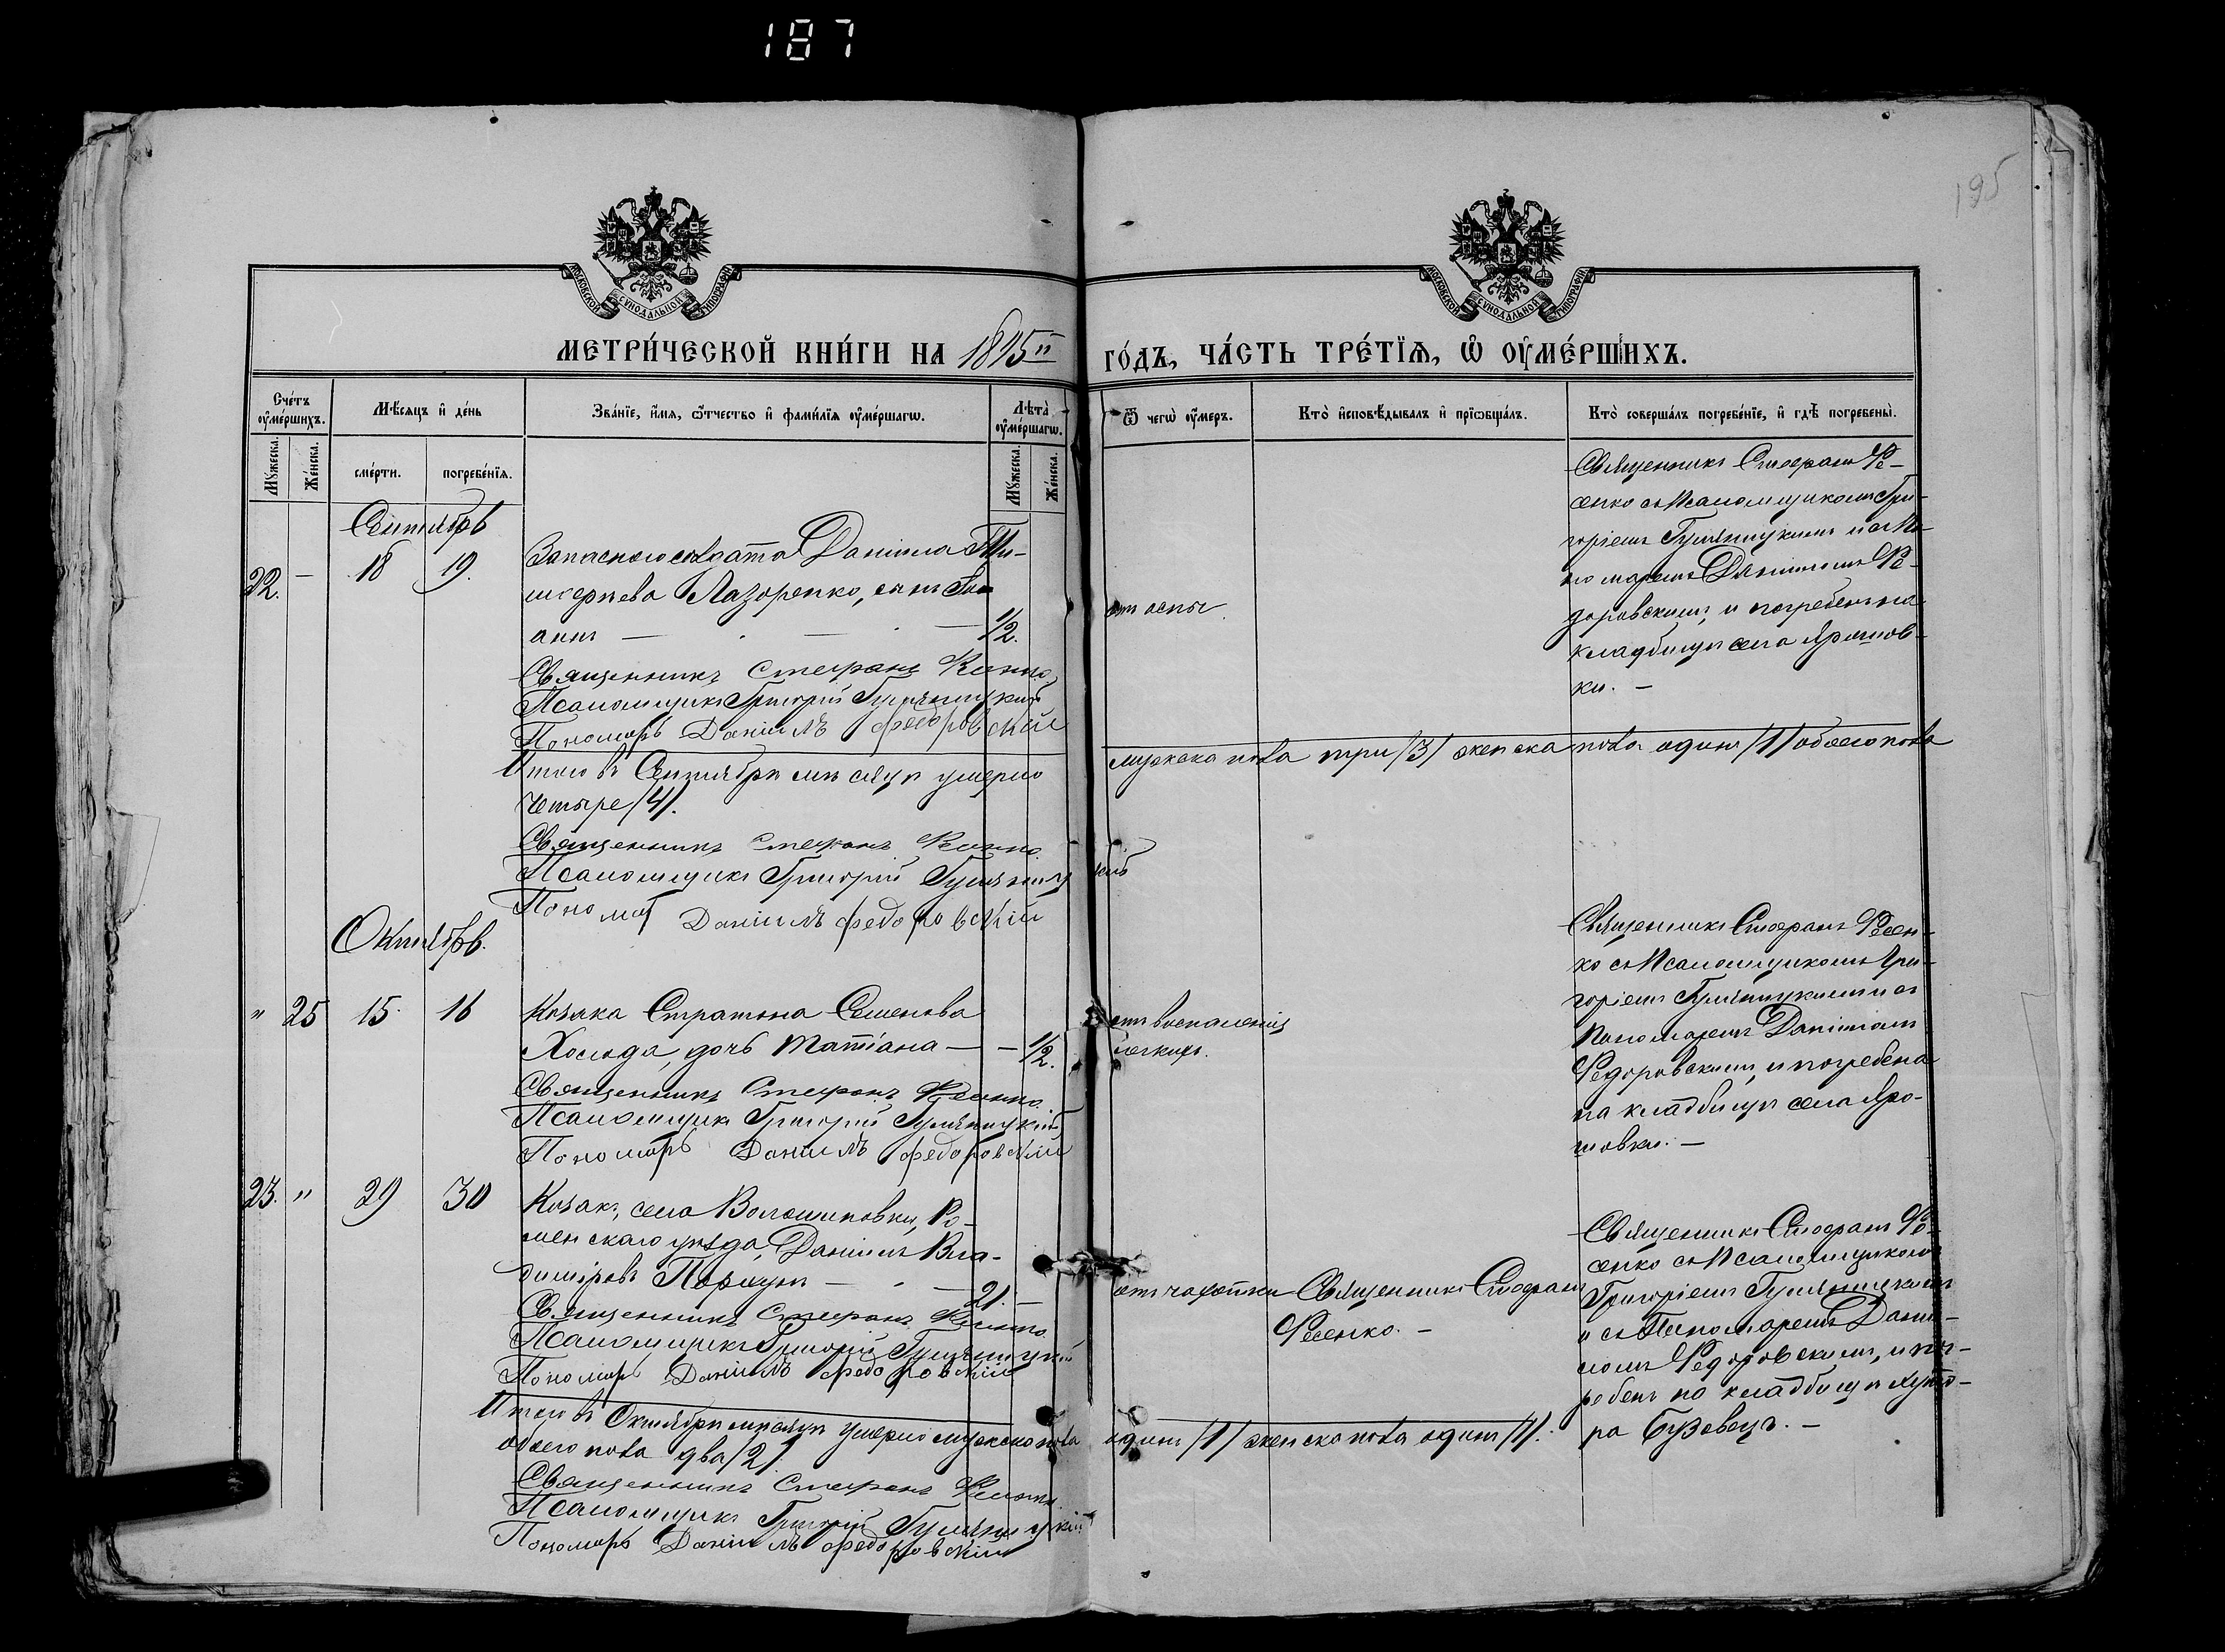 187
195
МОСКОВСКОЙ СѴНОДАЛЬНОЙ ТИПОГРАФІИ
МОСКОВСКОЙ СѴНОДАЛЬНОЙ ТИПОГРАФІИ
МЕТРИ́ЧЕСКОЙ КНИ́ГИ НА 1895й
ГО́ДЪ, ЧА́СТЬ ТРЕ́ТЇѦ, Ѽ ОУ҆МЕ́РШИХЪ.
Сче́тъ оу҆ме́ршихъ.
Мꙋ́жеска.
Же́нска.
Мѣ́сѧцъ и҆ де́нь
сме́рти.
погребе́нїѧ.
Зва́нїе, и҆́мѧ, ѻ҆́тчество и҆ фами́лїѧ оу҆ме́ршагѡ.
Лѣта̀ оу҆ме́ршагѡ.
Мꙋ́жеска.
Же́нска.
Ѿ чегѡ̀ оу҆́меръ.
Кто̀ и҆сповѣ́дывалъ и҆ прїѡбща́лъ.
Кто̀ соверша́лъ погребе́нїе, и҆ гдѣ̀ погребены̀.
Сентябрь
22. — 18 19.
Запаснаго солдата Даніила Ти-
моѳеева Лазоренко, сынъ Іо-
аннъ — — — 1/2.
отъ оспы.
Священникъ Стефанъ Фе-
сенко съ Псаломщикомъ Гри-
горіемъ и съ По-
номаремъ Даніиломъ Ѳе-
доровскимъ, и погребенъ на
кладбищѣ села Ярошов-
ки. —
Священникъ Стефанъ Фесенко.
Псаломщикъ Григорій
Пономарь Даніилъ Федоровскій
Итого въ Сентябрѣ мѣсяцѣ умерло
мужеска пола три /3/ женска пола одинъ /1/ обоего пола
четыре /4/.
Священникъ Стефанъ Фесенко.
Псаломщикъ Григорій
Пономарь Даніилъ Федоровскій
Октябрь.
" 25 15. 16
Козака Стратона Семенова
дочь Татіана — — 1/2.
отъ воспаленія
легкихъ.
Священникъ Стефанъ Фесен-
ко съ Псаломщикомъ Гри-
горіемъ и съ
Пономаремъ Даніиломъ
Ѳедоровскимъ, и погребена
на кладбищѣ села Яро-
шовки. —
Священникъ Стефанъ Фесенко.
Псаломщикъ Григорій
Пономарь Даніилъ Федоровскій
23. " 29 30
Козакъ, села Волошиновки, Ро-
менскаго уѣзда, Даніилъ Вла-
диміровъ — — 21. —
отъ чахотки
Священникъ Стефанъ
Фесенко. —
Священникъ Стефанъ Фе-
сенко съ Псаломщикомъ
Григоріемъ
и съ Пономаремъ Дані-
ломъ Ѳедоровскимъ, и пог-
ребенъ на кладбищѣ хуто-
ра Бузовецъ. —
Священникъ Стефанъ Фесенко.
Псаломщикъ Григорій
Пономарь Даніилъ Федоровскій
Итого въ Октябрѣ мѣсяцѣ умерло мужеска пола
одинъ /1/ женска пола одинъ /1/.
обоего пола два /2/.
Священникъ Стефанъ Фесенко.
Псаломщикъ Григорій
Пономарь Даніилъ Федоровскій